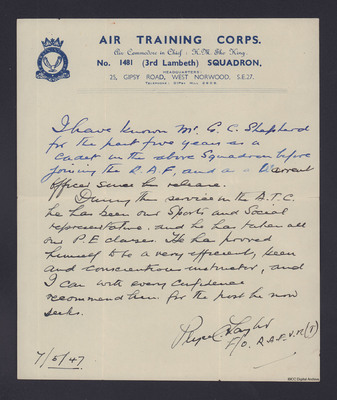 AIR TRAINING CORPS.
Air Commodore in Chief : H.M. The King.
No. 1481 (3rd Lambeth) SQUADRON,
HEADQUARTERS:
25, GIPSY ROAD, WEST NORWOOD, S.E.27.
I have known Mr. G. C. Shepherd
for the past five years as a
cadet in the above Squadron before
joining the R.A.F, and as a Warrant
Officer since his release.
During this service in the A.T.C.
he has been our Sports and Social
representative, and he has taken all
our P.E classes. He has proved
himself to be a very efficient, keen
and conscientious instructor, and
I can with every confidence
recommend him for the post he now
seeks.
F/O. R.A.F.V.R.(T)
7/5/47.
IBCC Digital Archive